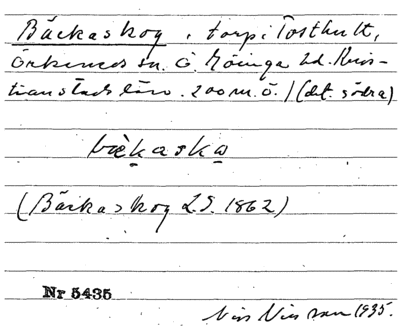 Bäckaskog, torp i Tosthult,
Örkeneds sn. Ö. Göinge hd. Kris-
tianstads län. 200 m. ö. / (det södra)
bæ̀kaska
(Bäckaskog L.S. 1862)
Nr 5435
Nils Nilsson 1935.